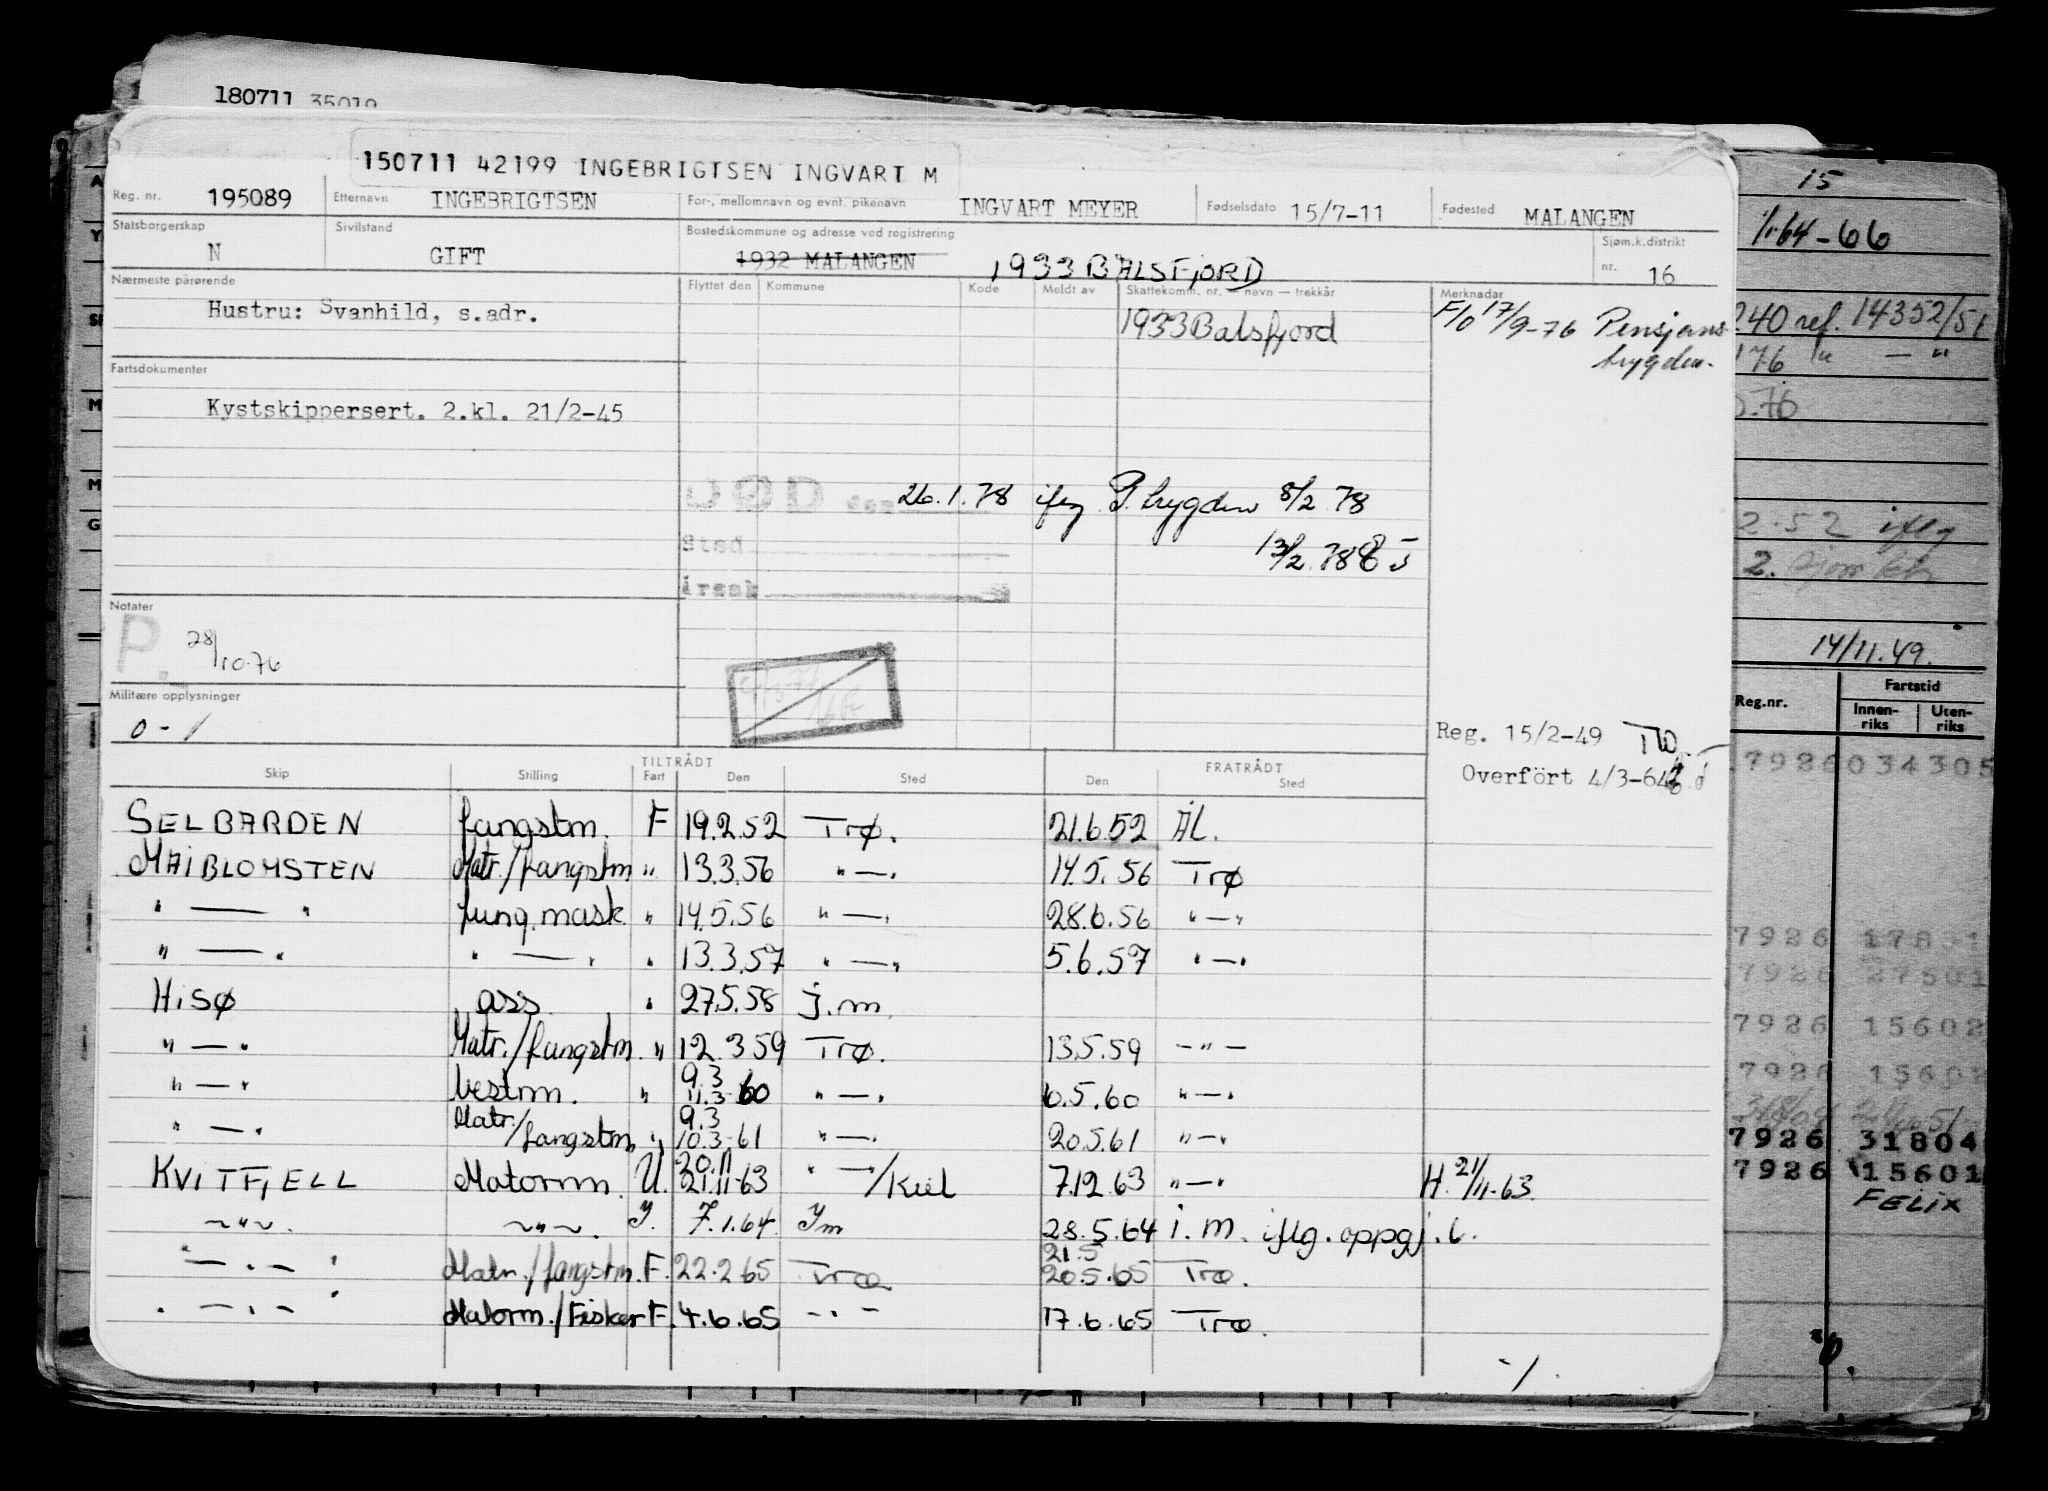 180711 35019
150711 42199 INGEBRIGTSEN INGVART M
Reg. nr. 195089 Etternavn INGEBRIGTSEN For-, mellomnavn og evnt. pikenavn INGVART MEYER Fødselsdato 15/7-11 Fødested MALANGEN
Statsborgerskap N Sivilstand GIFT Bostedskommune og adresse ved registrering 1932 MALANGEN 1933 BALSFJORD Sjøm.k.distrikt nr. 16
Nærmeste pårørende Flyttet den Kommune Kode Meldt av Skattekomm. nr. — navn — trekkår Merknader
Hustru: Svanhild, s.adr. 1933 Balsfjord F/o 17/9-76 Pensjons
trygden.
Fartsdokumenter
Kystskippersert. 2.kl. 21/2-45
DØD 26.1.78 iflg P. trygden 8/2 78
Sted 13/2 78
Årsak
Notater
P. 28/10-76
Militære opplysninger
0-1
Reg. 15/2-49
Overfört 4/3-64
TILTRÅDT FRATRÅDT
Skip Stilling Fart Den Sted Den Sted
SELBARDEN fangstm. F 19.2.52 Trø. 21.6.52 Ål.
MAIBLOMSTEN Matr./fangstm " 13.3.56 " — " 14.5.56 Trø
" — " fung. mask " 14.5.56 " — " 28.6.56 " — "
" — " " — " " 13.3.57 " — " 5.6.57 " — "
HISØ ass " 27.5.58 j.m.
" — " Matr./fangstm. " 12.3 59 Trø. 13.5.59 — " —
" — " bestm. " 9.3 11.3-60 " — " 6.5.60 " — "
" — " Matr./fangstm. " 9.3 10.3-61 " — " 20.5.61 " — "
KVITFJELL Matorm. U. 20.11 21.11-63 " — "/Kiel 7.12.63 " — " H. 21/11-63
~"~. ~"~. I. 7.1.64 Im 28.5.64 i.m. iflg. oppgj. l.
" — " Matr./fangstm. F. 22.2 65 Trø 21.5 20.5.65 Trø.
" — " Matorm./Fisker F. 4.6.65 — " — 17.6.65 Trø.
-/.
15
1/1 64-66
240 ref. 14352/51
176 " — "
2.52 iflg
14/11.49.
Reg.nr. Fartstid
Innen-riks Uten-riks
7926 034305
7926 17831
7926 27501
7926 15602
7926 15602
7926 31804
7926 15601
FELIX